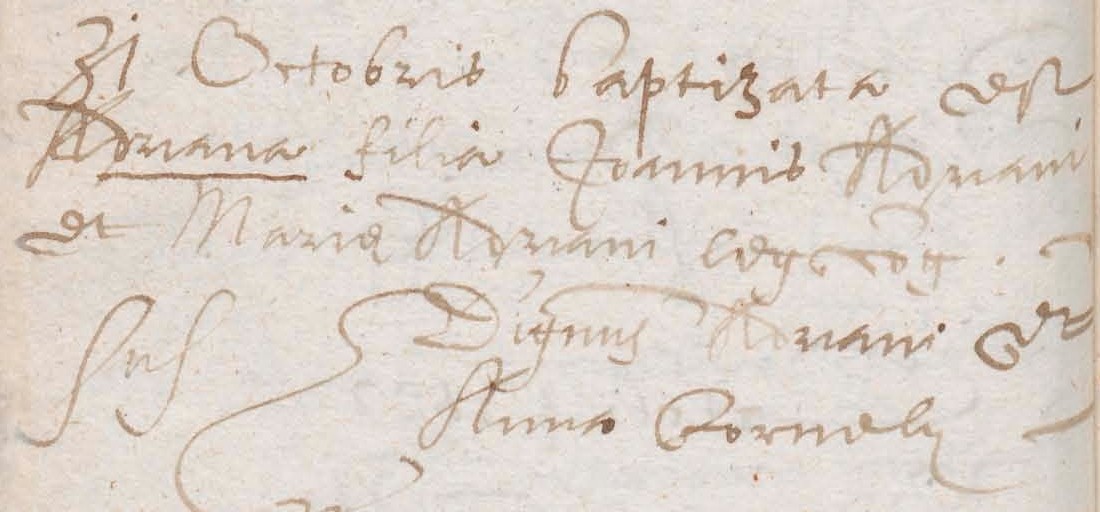 31 Octobris baptizata est
Adriana filia Joannis Adriani
et Mariæ Adriani leg. conj.
sus. Dignus Adriani et
Anna Cornely